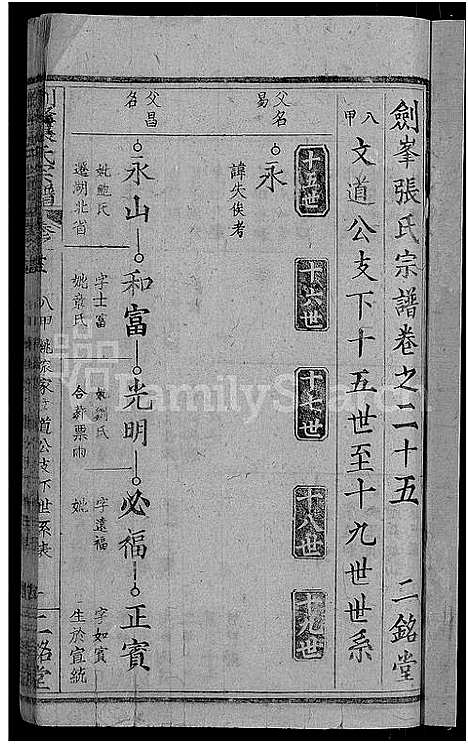 劍峯張氏宗譜卷之二十五 二銘堂
八甲 文道公支下十五世至十九世世系
十五世 十六世 十七世 十八世 十九世
父名易
永
諱失俟考
父昌名
永山 和富 光明 必福 正賓
妣鮑氏
遷湖北省
字士富
妣章氏
妣劉氏
字遠福
妣
字如賓
生於宣統
張氏宗譜
八甲
道公支下世系表
二銘堂
FamilySearch